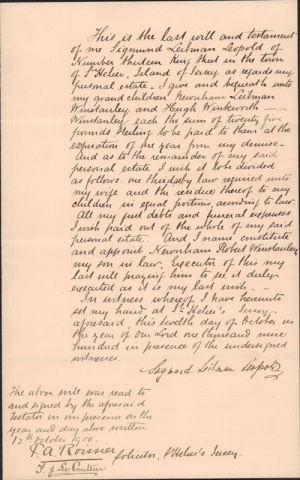 This is the last will and testament
of me Sigmund Leitman Leopold of
Number thirteen King Street in the town
of St Helier, Island of Jersey as regards my
personal estate. I give and bequeath unto
my grand children Newenham Leitman
Winstanley and Hugh Wentworth
Winstanley each the sum of twenty five
pounds sterling to be paid to them at the
expiration of one year from my demise.
And as to the remainder of my said
personal estate I wish it to be divided
as follows one third by law required unto
my wife and the residue thereof to my
children in equal portions, according to law.
All my just debts and funeral expenses
I wish paid out of the whole of my said
personal estate. And I name constitute
and appoint Newenham Robert Winstanley
my son in law, Executor of this my
last will praying him to see it duly
executed as it is my last wish.
In witness whereof I have hereunto
set my hand at St Helier's Jersey
aforesaid, this twelfth day of October in
the year of Our Lord one thousand nine
hundred in presence of the undersigned
witnesses.
Sigmund Leitman Leopold
The above will was read to
and signed by the aforesaid
testator in our presence on the
year and day above written
12th October 1900.
solicitor, St Helier's Jersey.
F. J. Le Couteur